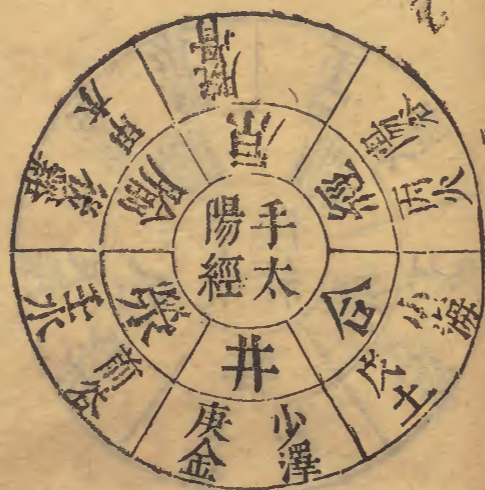 手太
陽經
井
少澤
庚金
滎
前谷
壬水
後谿
甲木
經
陽谷
丙火
合
小海
戊土